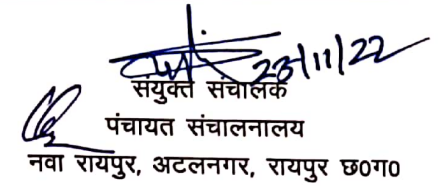 23/11/22
संयुक्त संचालक
पंचायत संचालनालय
नवा रायपुर, अटलनगर, रायपुर छ0ग0